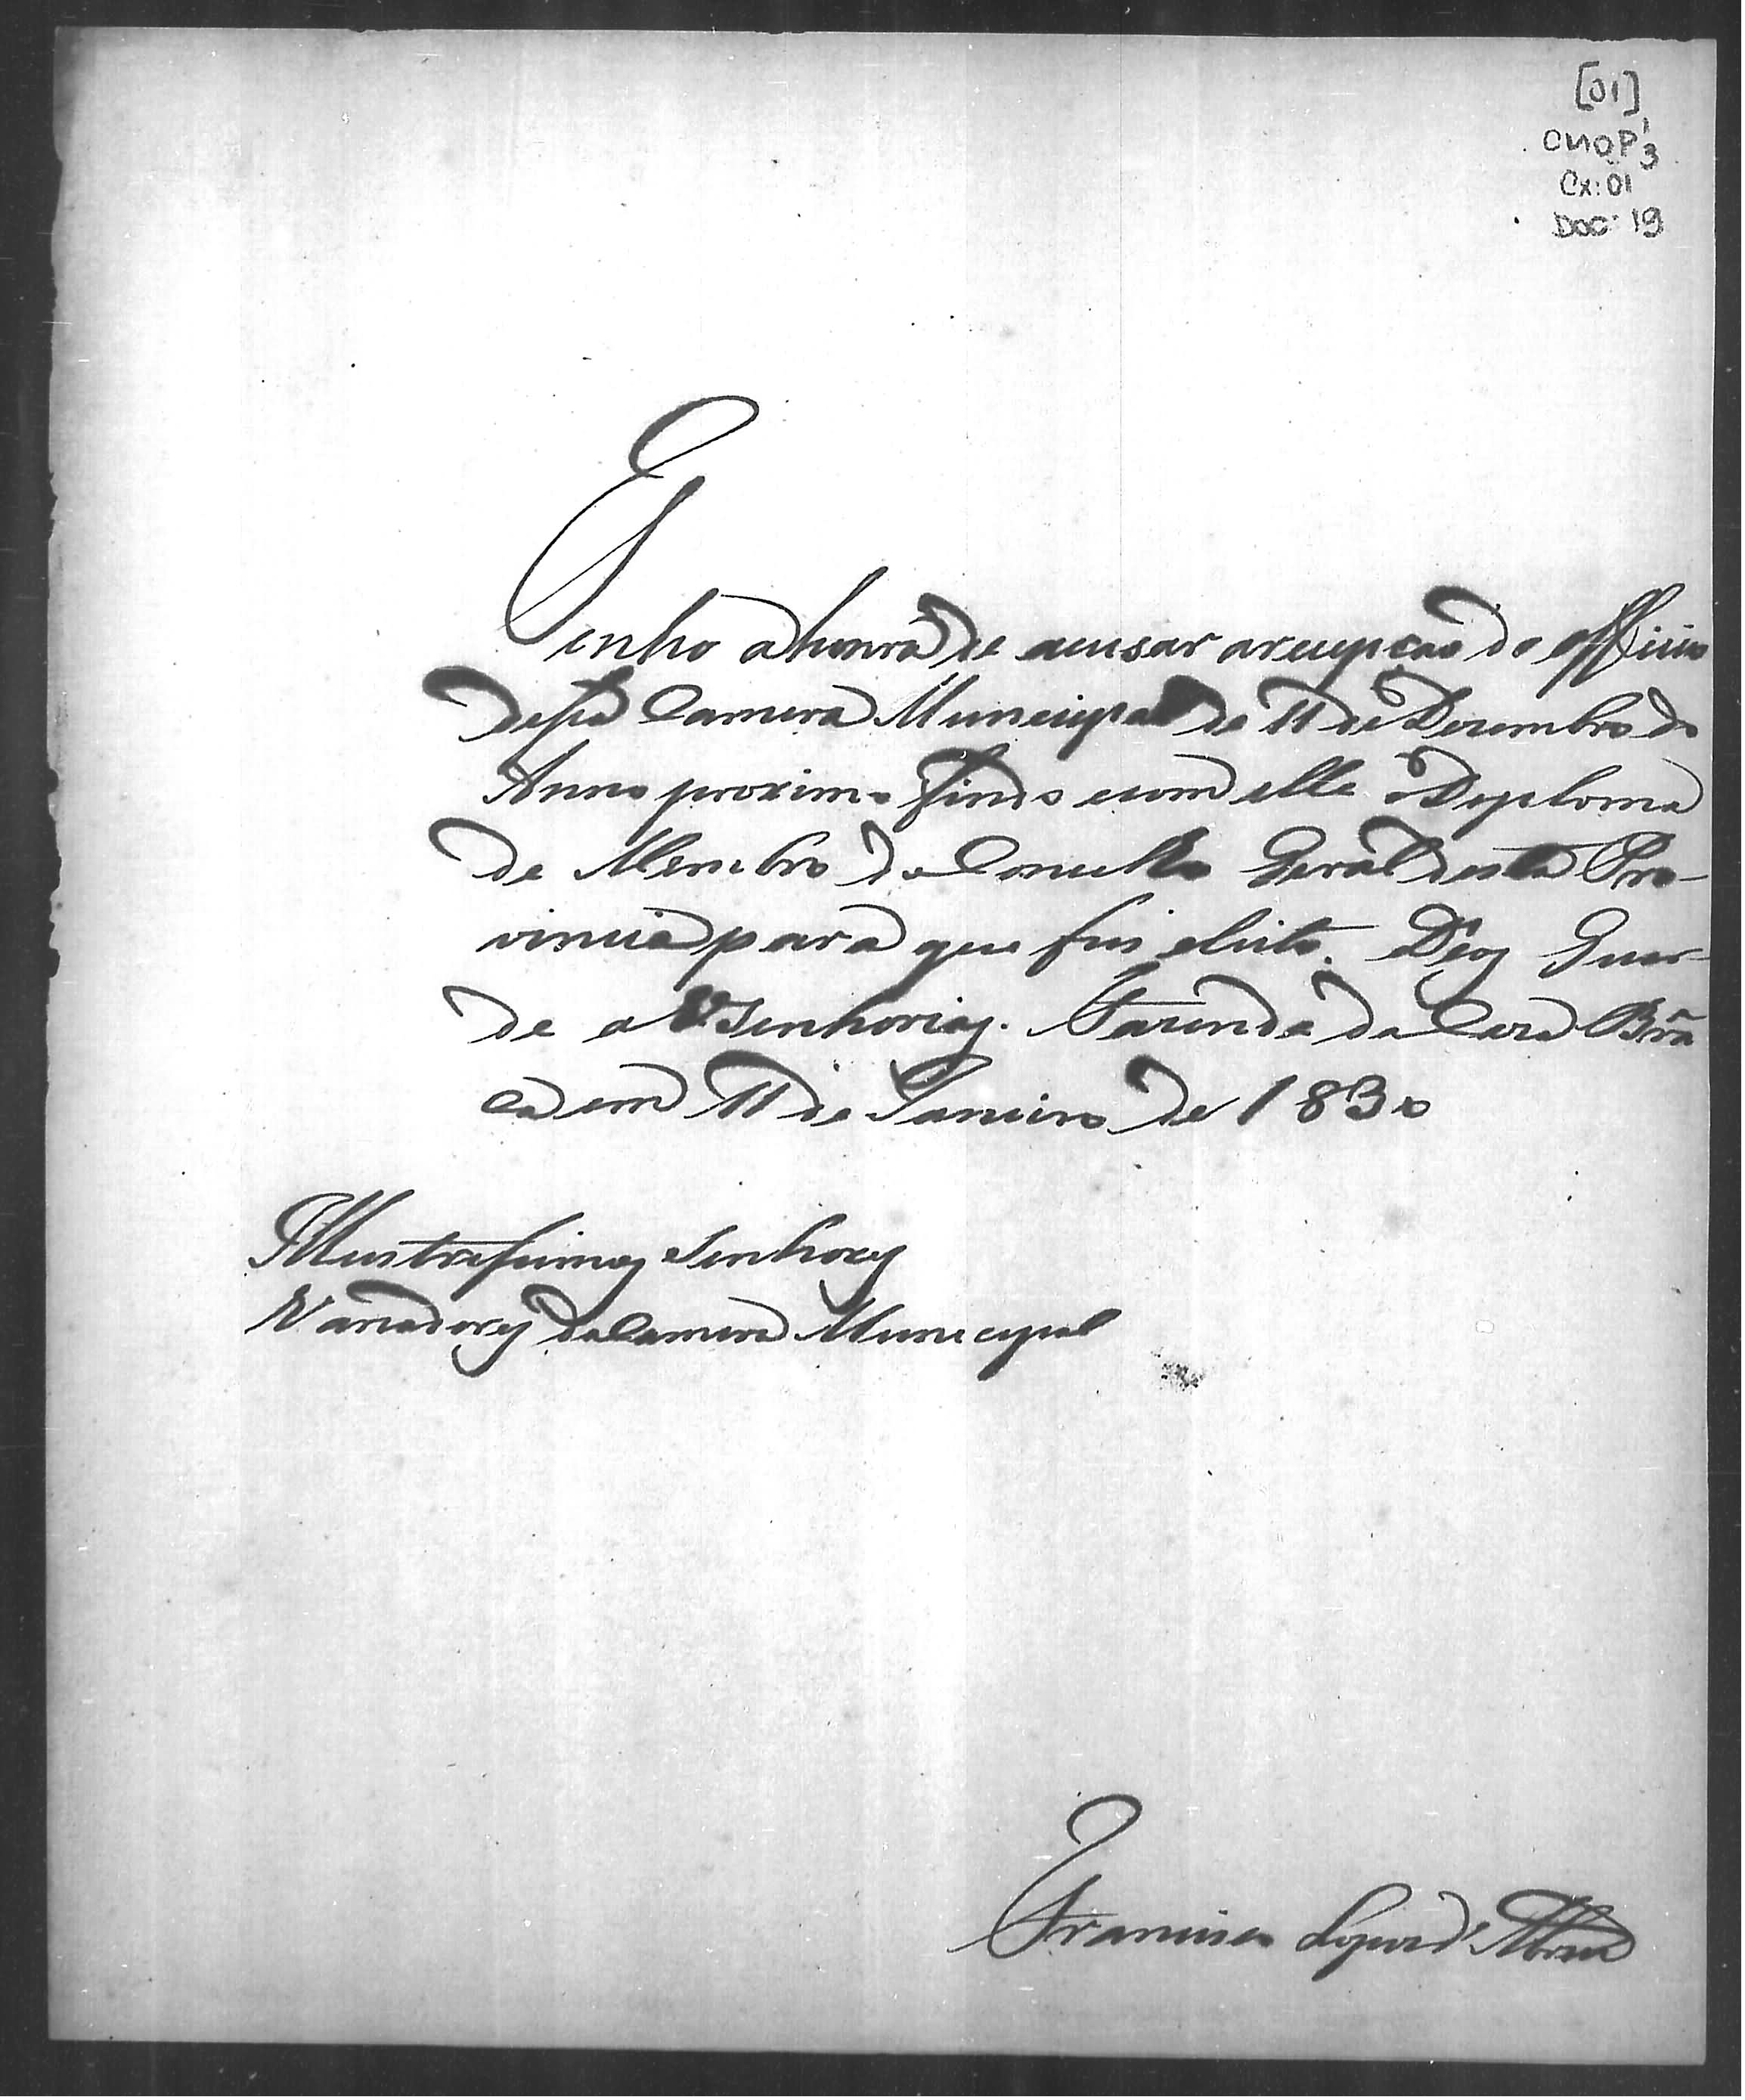 [01]
CMOP 1/3
Cx: 01
DOC: 19
Tenho a honra de acusar a recepcao do officio
desta Camera Municipal de 11 de Dezembro do
Anno proximo findo e com elle o Deploma
de Membro do Concelho Geral desta Pro-
vincia para que fui eleito. Deos Guar-
de a VSenhorias. Fazenda da Caza Brã
ca em 11 de Janeiro de 1830
Illustrassimos Senhores
Variadores da Camera Municipal
Francisco d'Abreu